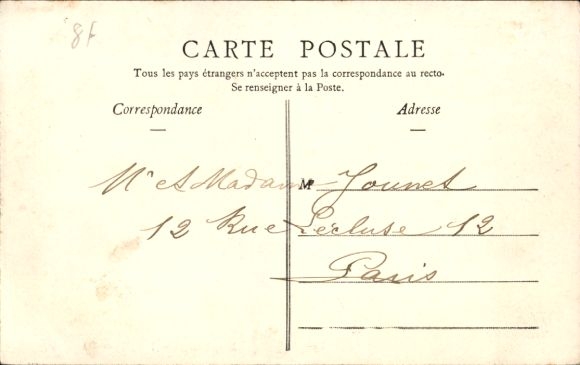 8f
CARTE POSTALE
Tous les pays étrangers n'acceptent pas la correspondance au recto.
Se renseigner à la Poste.
Correspondance
Adresse
Mr et Madame Jounet
M
12 Rue Lécluse 12
Paris